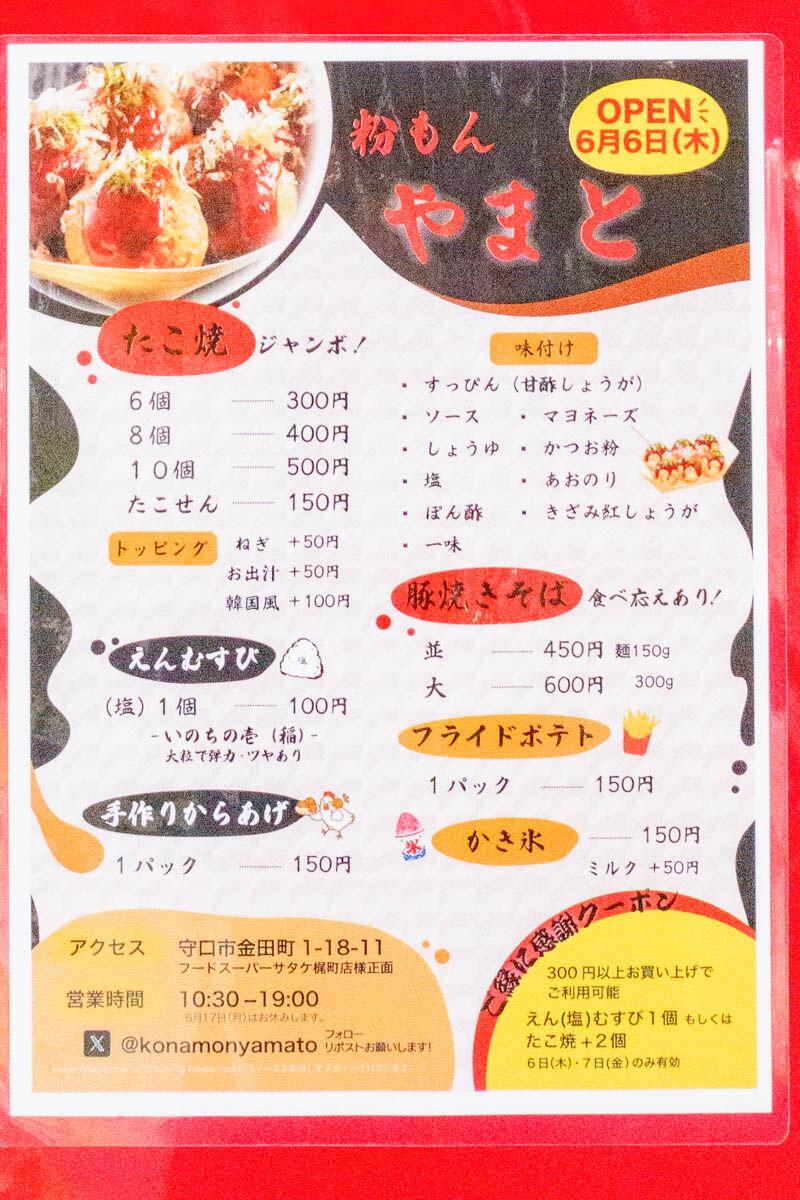 OPEN
6月6日(木)
粉もん
やまと
たこ焼 ジャンボ!
6個 300円
8個 400円
10個 500円
たこせん 150円
トッピング
ねぎ +50円
お出汁 +50円
韓国風 +100円
味付け
・すっぴん(甘酢しょうが)
・ソース ・マヨネーズ
・しょうゆ ・かつお粉
・塩 ・あおのり
・ぽん酢 ・きざみ紅しょうが
・一味
豚焼きそば 食べ応えあり!
並 450円 麺150g
大 600円 300g
えんむすび
塩
(塩)1個 100円
-いのちの壱(稲)-
大粒で弾力・ツヤあり
フライドポテト
1パック 150円
手作りからあげ
1パック 150円
氷
かき氷 150円
ミルク +50円
アクセス 守口市金田町 1-18-11
フードスーパーサタケ梶町店様正面
営業時間 10:30−19:00
6月17日(月)はお休みします。
X @konamonyamato フォロー
リポストお願いします!
ご縁に感謝クーポン
300円以上お買い上げで
ご利用可能
えん(塩)むすび1個 もしくは
たこ焼+2個
6日(木)・7日(金)のみ有効